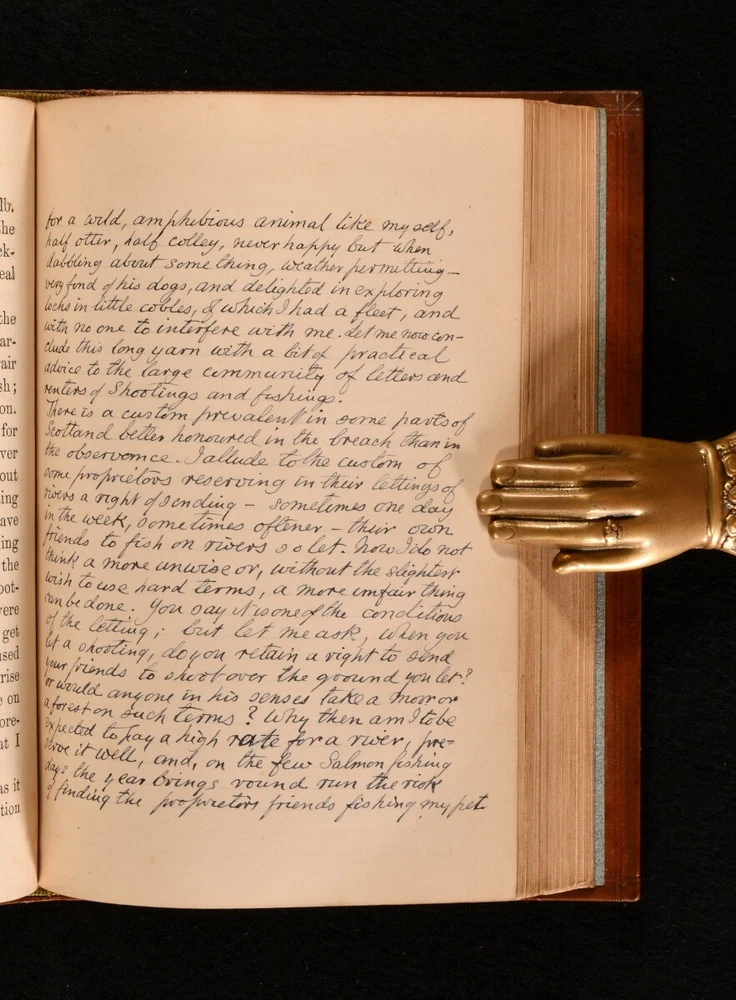 lb.
the
ek-
eal
the
ar-
air
sh;
on.
for
ver
out
ing
ave
ing
the
oot-
ere
get
used
rise
e on
ore-
at I
as it
tion
for a wild, amphibious animal like myself,
half otter, half colley, never happy but when
dabbling about something, weather permitting –
very fond of his dogs, and delighted in exploring
lochs in little cobles, of which I had a fleet, and
with no one to interfere with me. Let me now con-
clude this long yarn with a bit of practical
advice to the large community of letters and
renters of Shootings and fishings.
There is a custom prevalent in some parts of
Scotland better honoured in the breach than in
the observance. I allude to the custom of
some proprietors reserving in their lettings of
rivers a right of sending – sometimes one day
in the week, sometimes oftener – their own
friends to fish on rivers so let. Now I do not
think a more unwise or, without the slightest
wish to use hard terms, a more unfair thing
can be done. You say it is one of the conditions
of the letting; but let me ask, when you
let a shooting, do you retain a right to send
your friends to shoot over the ground you let?
or would anyone in his senses take a moor or
a forest on such terms? Why then am I to be
expected to pay a high rate for a river, pre=
serve it well, and, on the few Salmon fishing
days the year brings round run the risk
of finding the proprietors friends fishing my pet